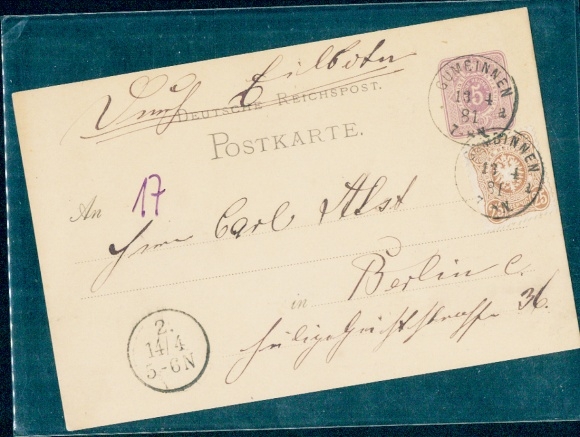 Durch Eilboten
DEUTSCHE REICHSPOST.
POSTKARTE.
5
GUMBINNEN
13 4
81
7-8N
GUMBINNEN
13 4
81
7-8N
25
17
An
Herrn Carl Alst
in Berlin C.
Heiligegeiststrasse 36.
2.
14/4
5-6N